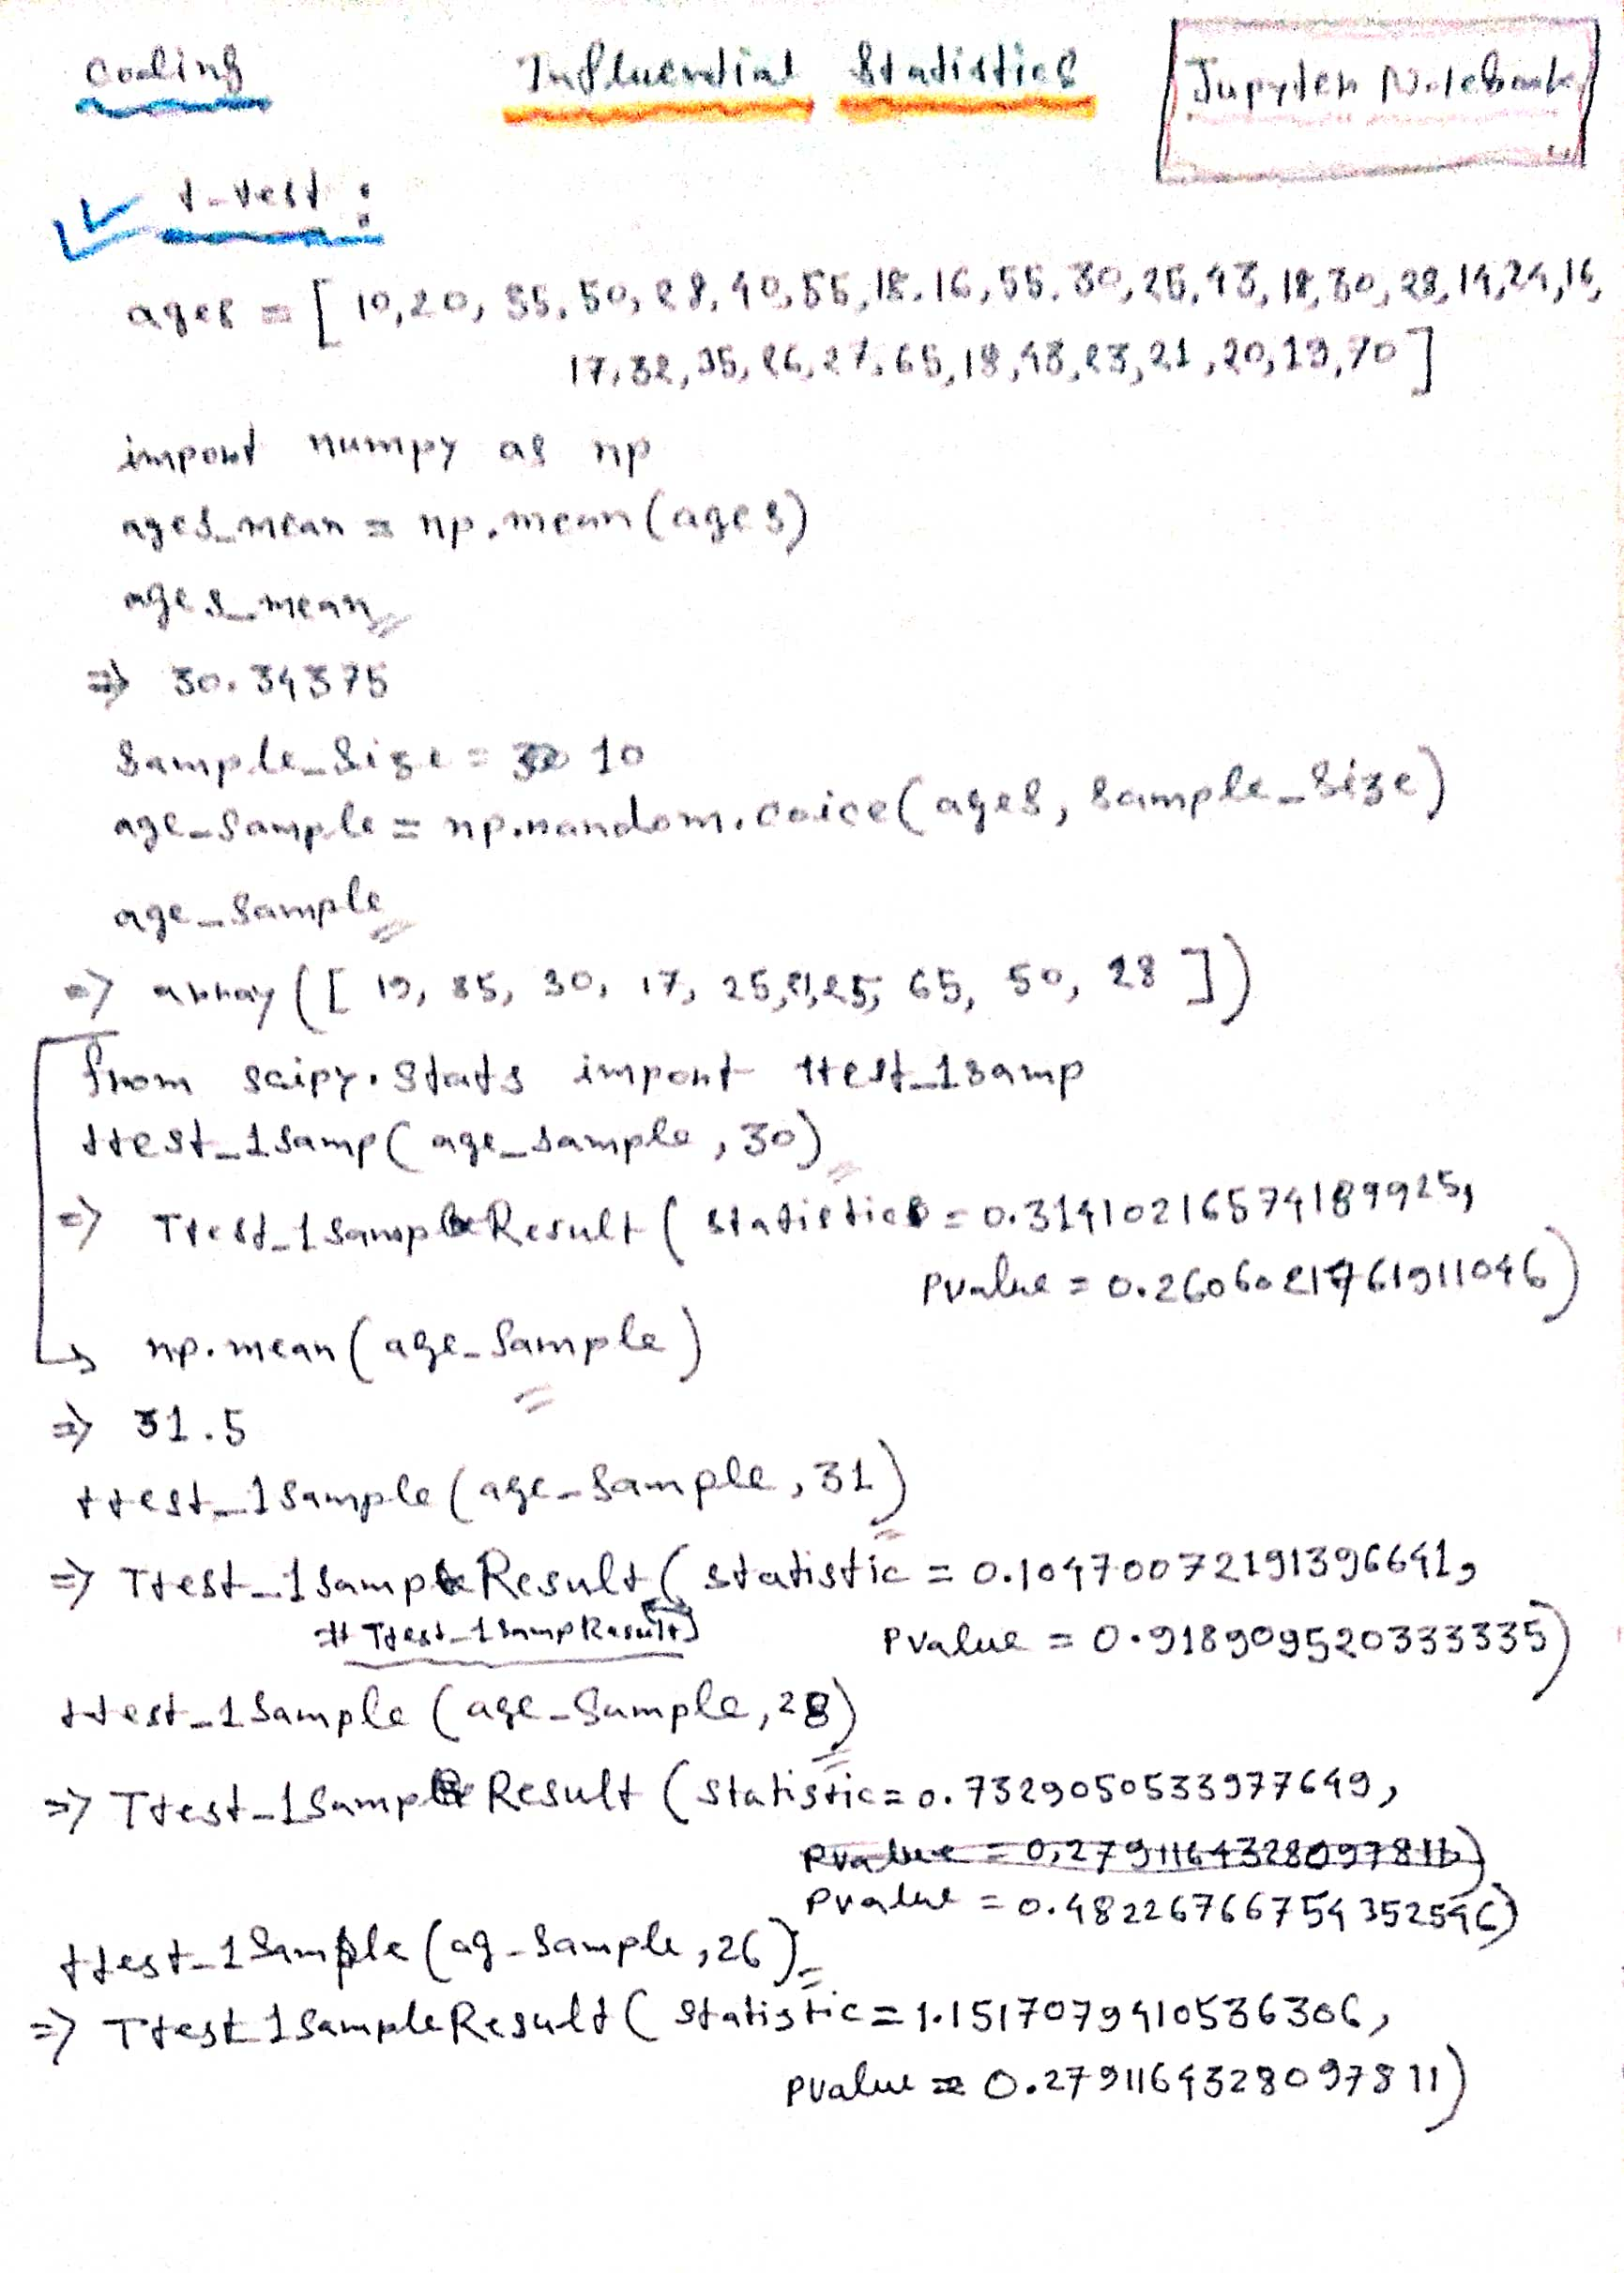 Coding Influential Statistics Jupyter Notebook
t-test :
ages = [ 10,20, 35, 50, 28, 40, 55, 18, 16, 55, 30, 25, 43, 18, 30, 28, 14, 24, 16,
17, 32, 35, 26, 27, 65, 18, 43, 23, 21, 20, 19, 70 ]
import numpy as np
ages_mean = np.mean(ages)
ages_mean
=> 30.34375
Sample_Size = 10
age_sample = np.random.coice(ages, sample_size)
age_sample
=> array([ 19, 35, 30, 17, 25, 21, 25, 65, 50, 28 ])
from scipy.stats import ttest_1samp
ttest_1samp(age_sample, 30)
=> Ttest_1sampResult ( statistic = 0.31410216574189925,
Pvalue = 0.26060217761911046)
np.mean(age_sample)
=> 31.5
ttest_1sample(age_sample, 31)
=> Ttest_1sampResult ( statistic = 0.10470072191396641,
# Ttest_1sampResult Pvalue = 0.918909520333335)
ttest_1sample (age_sample, 28)
=> Ttest_1SampResult (Statistic = 0.7329050533977649,
Pvalue = 0.2791164328097811)
Pvalue = 0.48226766754352546)
ttest_1sample (ag_sample, 26)
=> Ttest_1sampleResult ( statistic = 1.1517079410536306,
Pvalue = 0.2791164328097811)